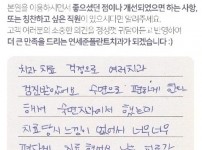 본원을 이용하시면서 좋으셨던 점이나 개선되었으면 하는 사항,
또는 칭찬하고 싶은 직원이 있으시다면 알려주세요.
고객 여러분의 소중한 의견을 경청해 귀담아듣고 반영하여
더 큰 만족을 드리는 연세준플란트치과가 되겠습니다 :)
치과 치료 걱정으로 여러치과
검진받아봤어요 수면으로 편하게 한다
해서 수면치과에서 했는데
치료받는 느낌이 없어서 너무너무
편하게